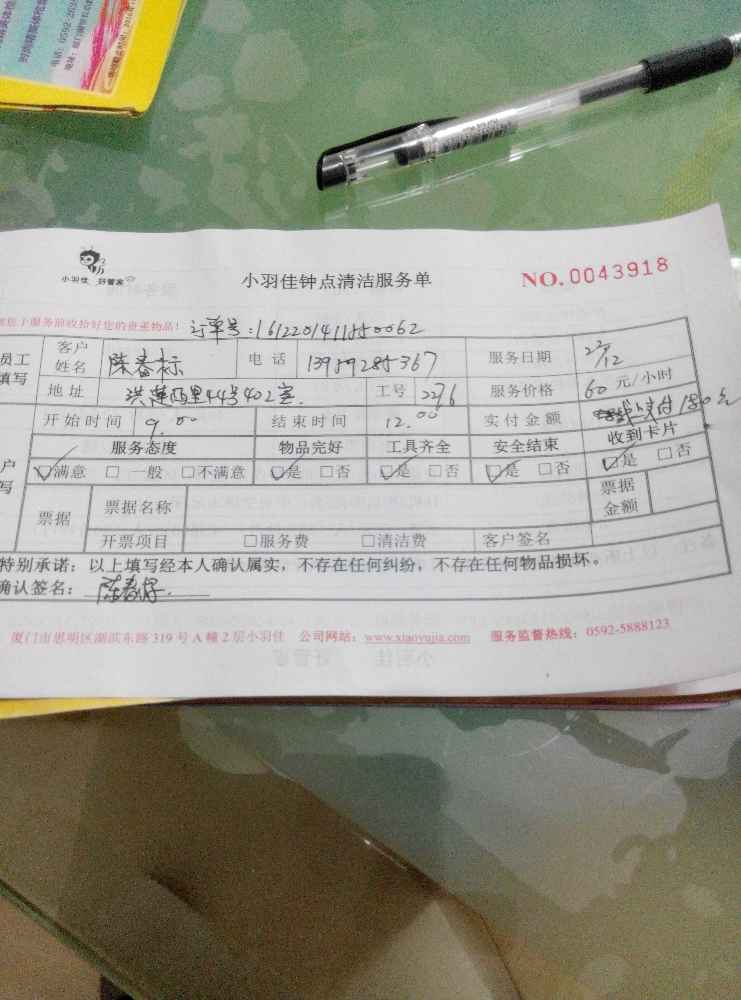 电话：0592-263
小羽佳 好管家
小羽佳钟点清洁服务单
NO. 0043918
服务前收拾好您的贵重物品！ 订单号：1612201411850062
员工填写 客户姓名 陈春标 电话 13959285367 服务日期 22/12
地址 洪莲西里44号402室 工号 2276 服务价格 60 元/小时
开始时间 9:00 结束时间 12:00 实付金额 线上支付180元
服务态度 物品完好 工具齐全 安全结束 收到卡片
户写 ☑满意 □一般 □不满意 ☑是 □否 ☑是 □否 ☑是 □否 ☑是 □否
票据 票据名称 票据金额
开票项目 □服务费 □清洁费 客户签名
特别承诺：以上填写经本人确认属实，不存在任何纠纷，不存在任何物品损坏。
确认签名： 陈春标
厦门市思明区湖滨东路319号A幢2层小羽佳 公司网站：www.xiaoyujia.com 服务监督热线：0592-5888123